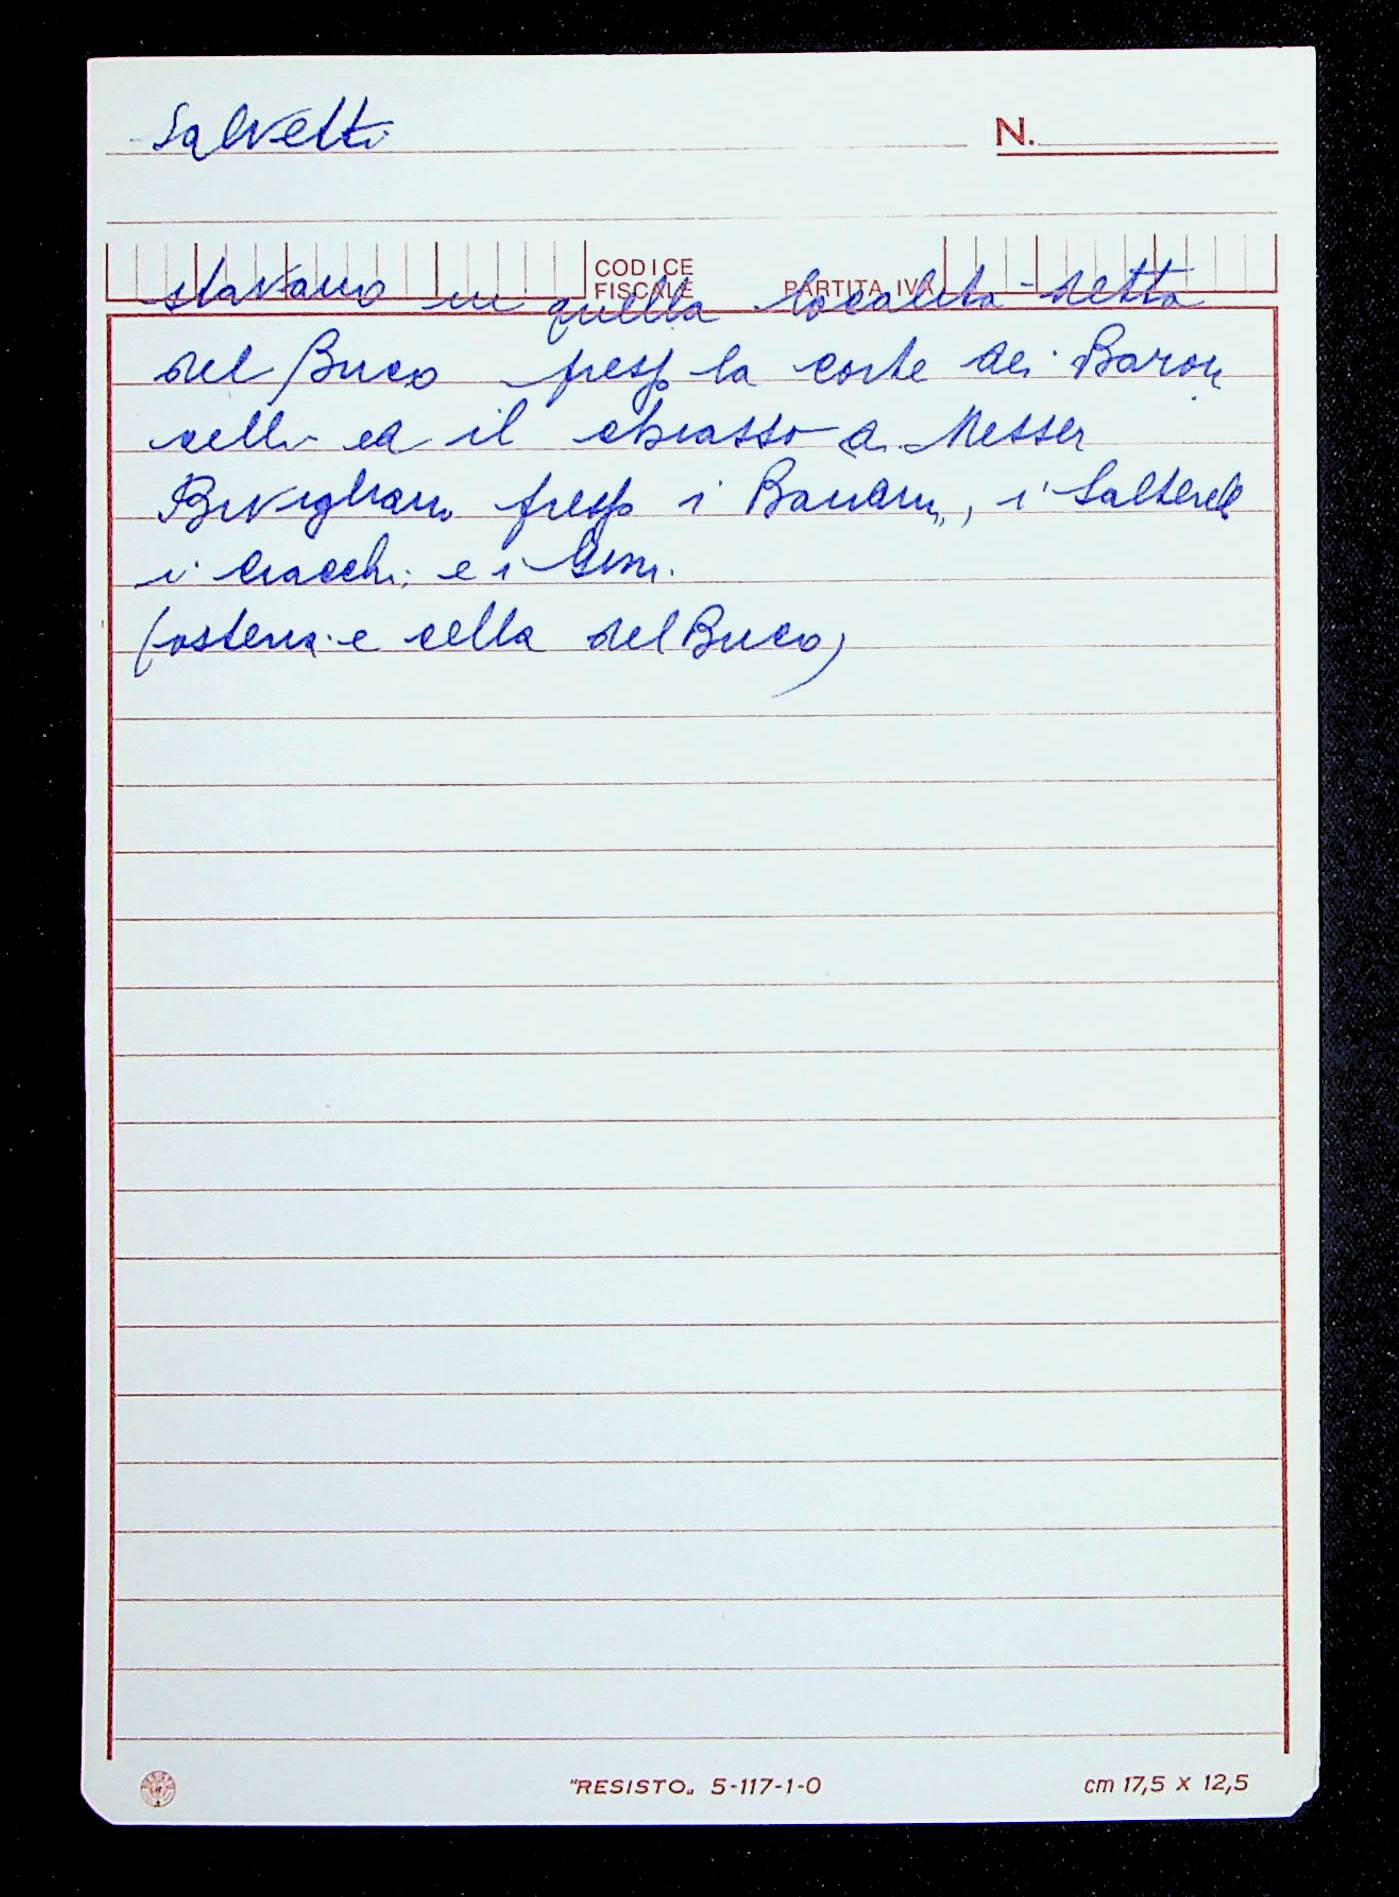 Salvetti
N.
CODICE FISCALE PARTITA IVA
stavano in quella località detta
del Buco presso la corte dei Baron
celli ed il chiasso a Messer
Bivigliano presso i Bandini, i Salterelli
i Ciacchi, e i
(osteria e cella del Buco)
"RESISTO„ 5-117-1-0
cm 17,5 x 12,5